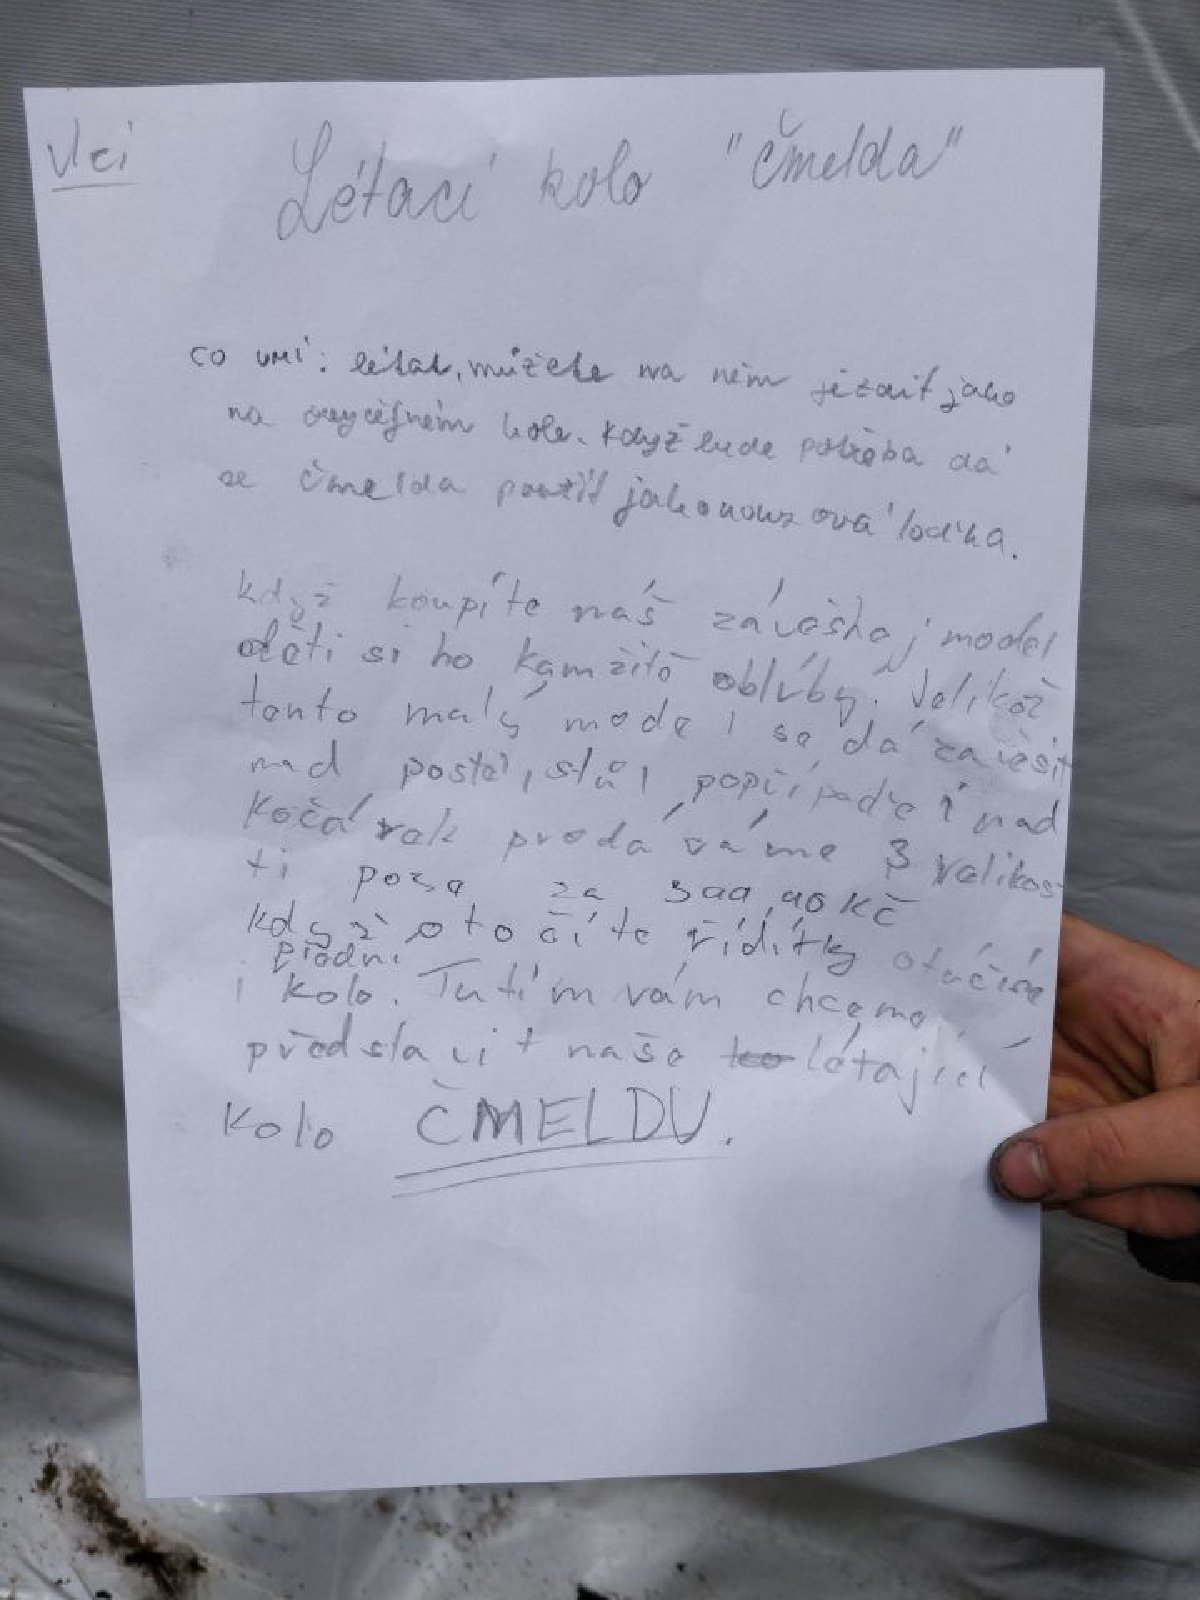 Vlci
Létací kolo "čmelda"
co umí: létat, můžete na něm jezdit jako
na obyčejném kole. když bude potřeba dá
se čmelda použít jako nouzová loďka.
když koupíte náš závěsnej model
děti si ho kamžitě oblíbý. Velikož
tento malý model se dá zavěsit
nad postel, stůl popřípadě i nad
kočárek prodáváme 3 velikos
ti pouze za 399,90 Kč
když otočíte řídítky otáčíse
přední
i kolo. Tutím vám chceme
představit naše létající
kolo ČMELDU.